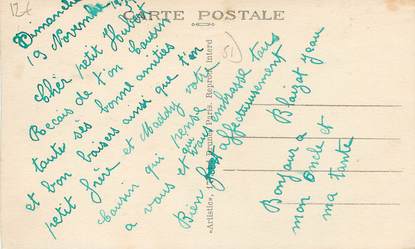 12€
CARTE POSTALE
Dimanche
19 Novembre
Cher petit Hubert
Recois de t'on Cousin
toute ses bonne amitiés
et bon baisers ainsi que t'on
petit frère et Maddy votre
Cousin qui pense
a vous et qui vous embrasse tous
Rien affectueusement
Blaizat Jean
Bonjour a
mon Oncle et
ma tante
«Artistic», Paris. Reprod. interd